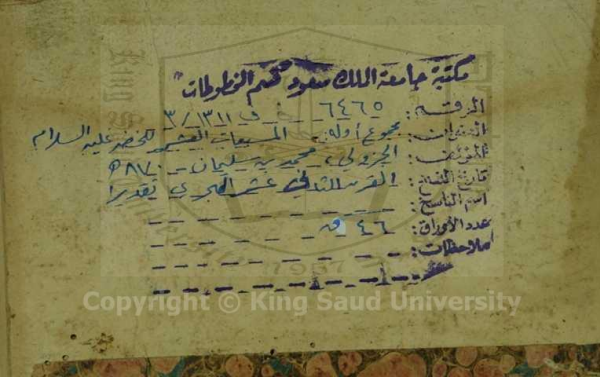 مكتبة جامعة الملك سعود قسم المخطوطات
الرقم: ٦٤٦٥ ف ١٣١١/٣
العنوان: مجموع أوله: المسبعات العشر للخضر عليه السلام
المؤلف: الجزولي، محمد بن سليمان - ٨٧٠هـ
تاريخ النسخ: القرن الثاني عشر الهجري تقديرا
اسم الناسخ:
عدد الأوراق: ٤٦ ق
ملاحظات:
1957
Copyright © King Saud University